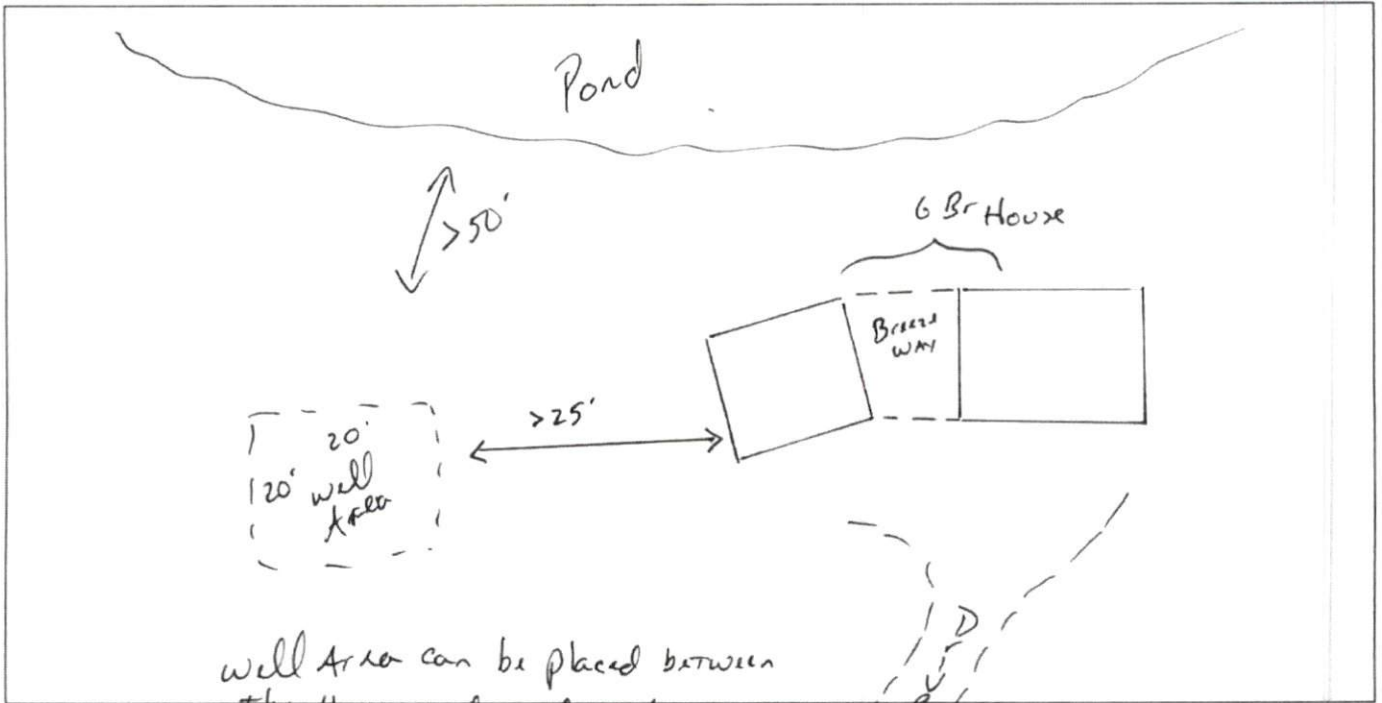 Pond
>50'
6 Br House
Breeze
WAY
>25'
20'
20' well
Area
D
well Area can be placed between